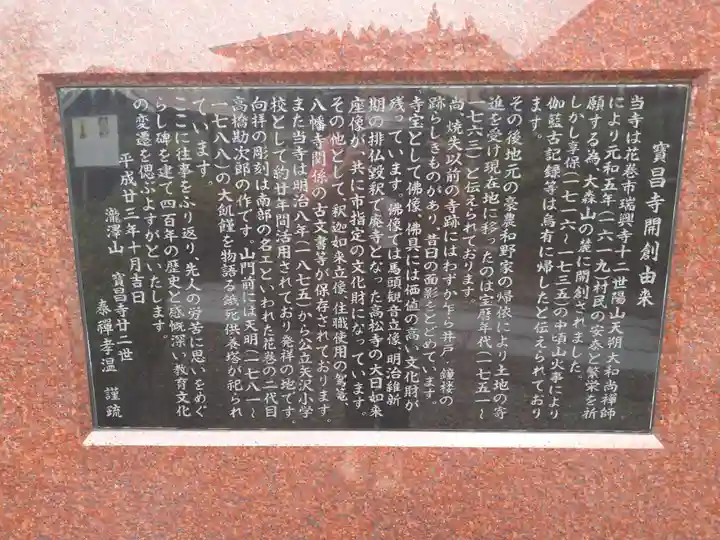 寳昌寺開創由来
当寺は花巻市瑞興寺十二世陽山天朔大和尚禅師
により元和五年(一六一九)村民の安泰と繁栄を祈
願する為、大森山の麓に開創されました。
しかし享保(一七一六~一七三五)の中頃山火事により
伽藍古記録等は烏有に帰したと伝えられており
ます。
その後地元の豪農和野家の帰依により土地の寄
進を受け現在地に移ったのは宝暦年代(一七五一~
一七六三)と伝えられております。
尚、焼失以前の寺跡にはわずか乍ら井戸、鐘楼の
跡らしきものがあり、昔日の面影をとどめています。
寺宝として佛像、佛具には価値の高い文化財が
残っています。佛像では馬頭観音立像、明治維新
期の排仏毀釈で廃寺となった高松寺の大日如来
座像が、共に市指定の文化財になっています。
その他として、釈迦如来立像、住職使用の駕篭、
八幡寺関係の古文書等が保存されております。
また当寺は明治八年(一八七五)から公立矢沢小学
校として約廿年間活用されており発祥の地です。
向拝の彫刻は南部の名工といわれた花巻の二代目
高橋勘次郎の作です。山門前には天明(一七八一~
一七八八)の大飢饉を物語る餓死供養塔が祀られ
ています。
ここに往事をふり返り、先人の労苦に思いをめぐ
らし碑を建て四百年の歴史と感慨深い教育文化
の変遷を偲ぶよすがといたします。
平成廿三年十月吉日
瀧澤山 寳昌寺廿二世
泰禪孝温 謹疏